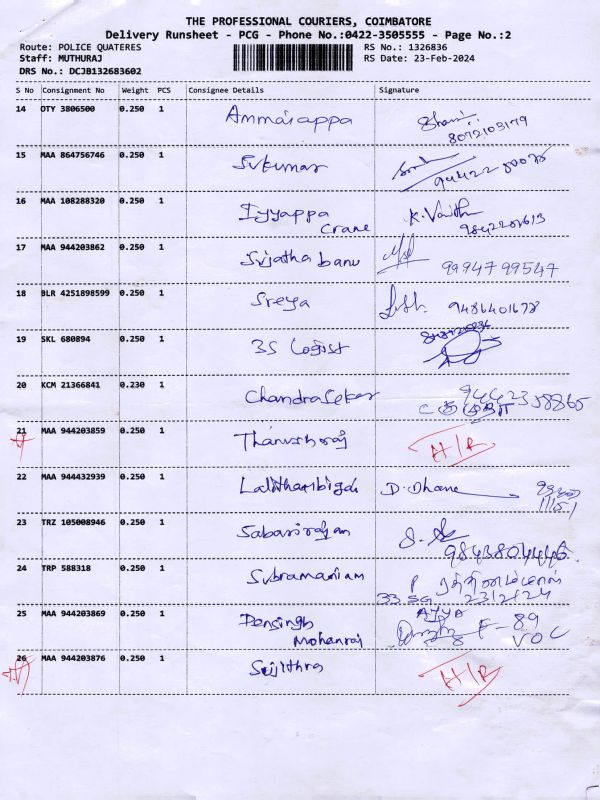 THE PROFESSIONAL COURIERS, COIMBATORE
Delivery Runsheet - PCG - Phone No.:0422-3505555 - Page No.:2
Route: POLICE QUATERES RS No.: 1326836
Staff: MUTHURAJ RS Date: 23-Feb-2024
DRS No.: DCJB132683602
S No Consignment No Weight PCS Consignee Details Signature
14 OTY 3806500 0.250 1 Ammaiappa
8072103179
15 MAA 864756746 0.250 1
16 MAA 108288320 0.250 1 Iyyappa K. Vaith
Crane
17 MAA 944203862 0.250 1 Sujatha banu 99947 99547
18 BLR 4251898599 0.250 1 Sreya 9486401678
19 SKL 680894 0.250 1 3S
20 KCM 21366841 0.230 1 ChandraSekar
21 MAA 944203859 0.250 1 A/R
22 MAA 944432939 0.250 1 D. Dhana
23 TRZ 105008946 0.250 1 Sabarirajan
9843804446
24 TRP 588318 0.250 1 Subramaniam P
33 SG 23/2/24
25 MAA 944203869 0.250 1 F-89
Mohanraj VOC
26 MAA 944203876 0.250 1 Sujithra A/R